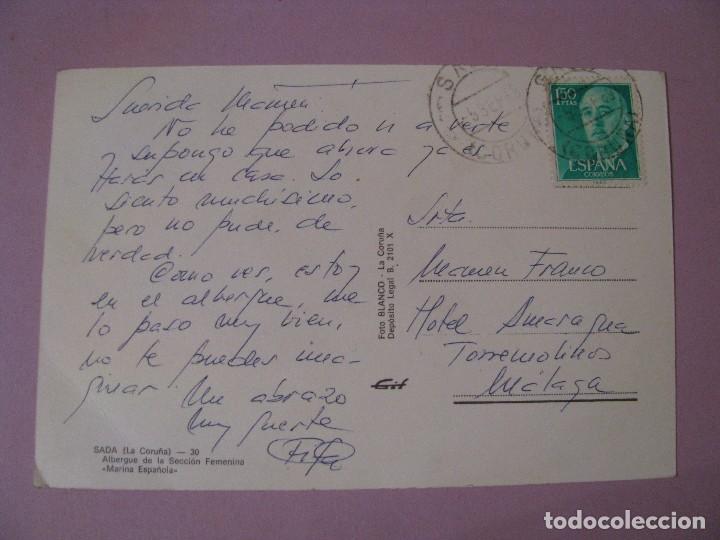 Querida Mamen:
No he podido ir a verte
supongo que ahora ya es-
tarás en casa. Lo
siento muchísimo,
pero no pude, de
verdad.
Como ves, estoy
en el albergue, me
lo paso muy bien,
no te puedes ima-
ginar.
Un abrazo
muy fuerte
SADA (La Coruña) — 30
Albergue de la Sección Femenina
«Marina Española»
Foto BLANCO - La Coruña
Depósito Legal B. 2101 X
Gif
1'50
PTAS
ESPAÑA
CORREOS
Srta.
Mamen Franco
Hotel
Torremolinos
Málaga
todocoleccion
todocoleccion.net